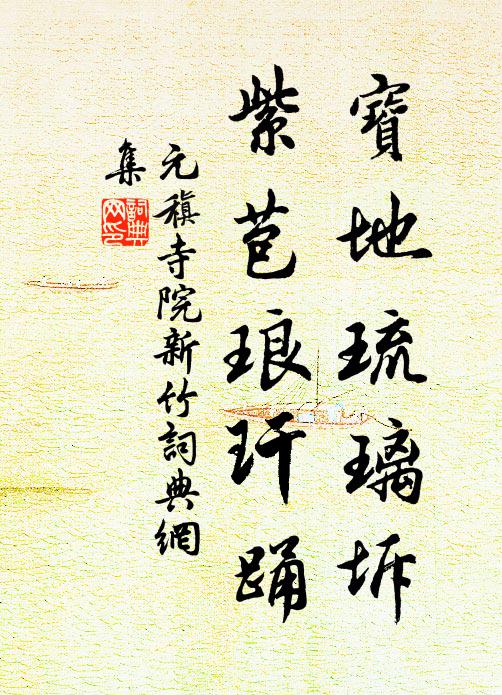 寶地琉璃坼
紫苞琅玕踊
元稹寺院新竹詞典網
集
詞典网印